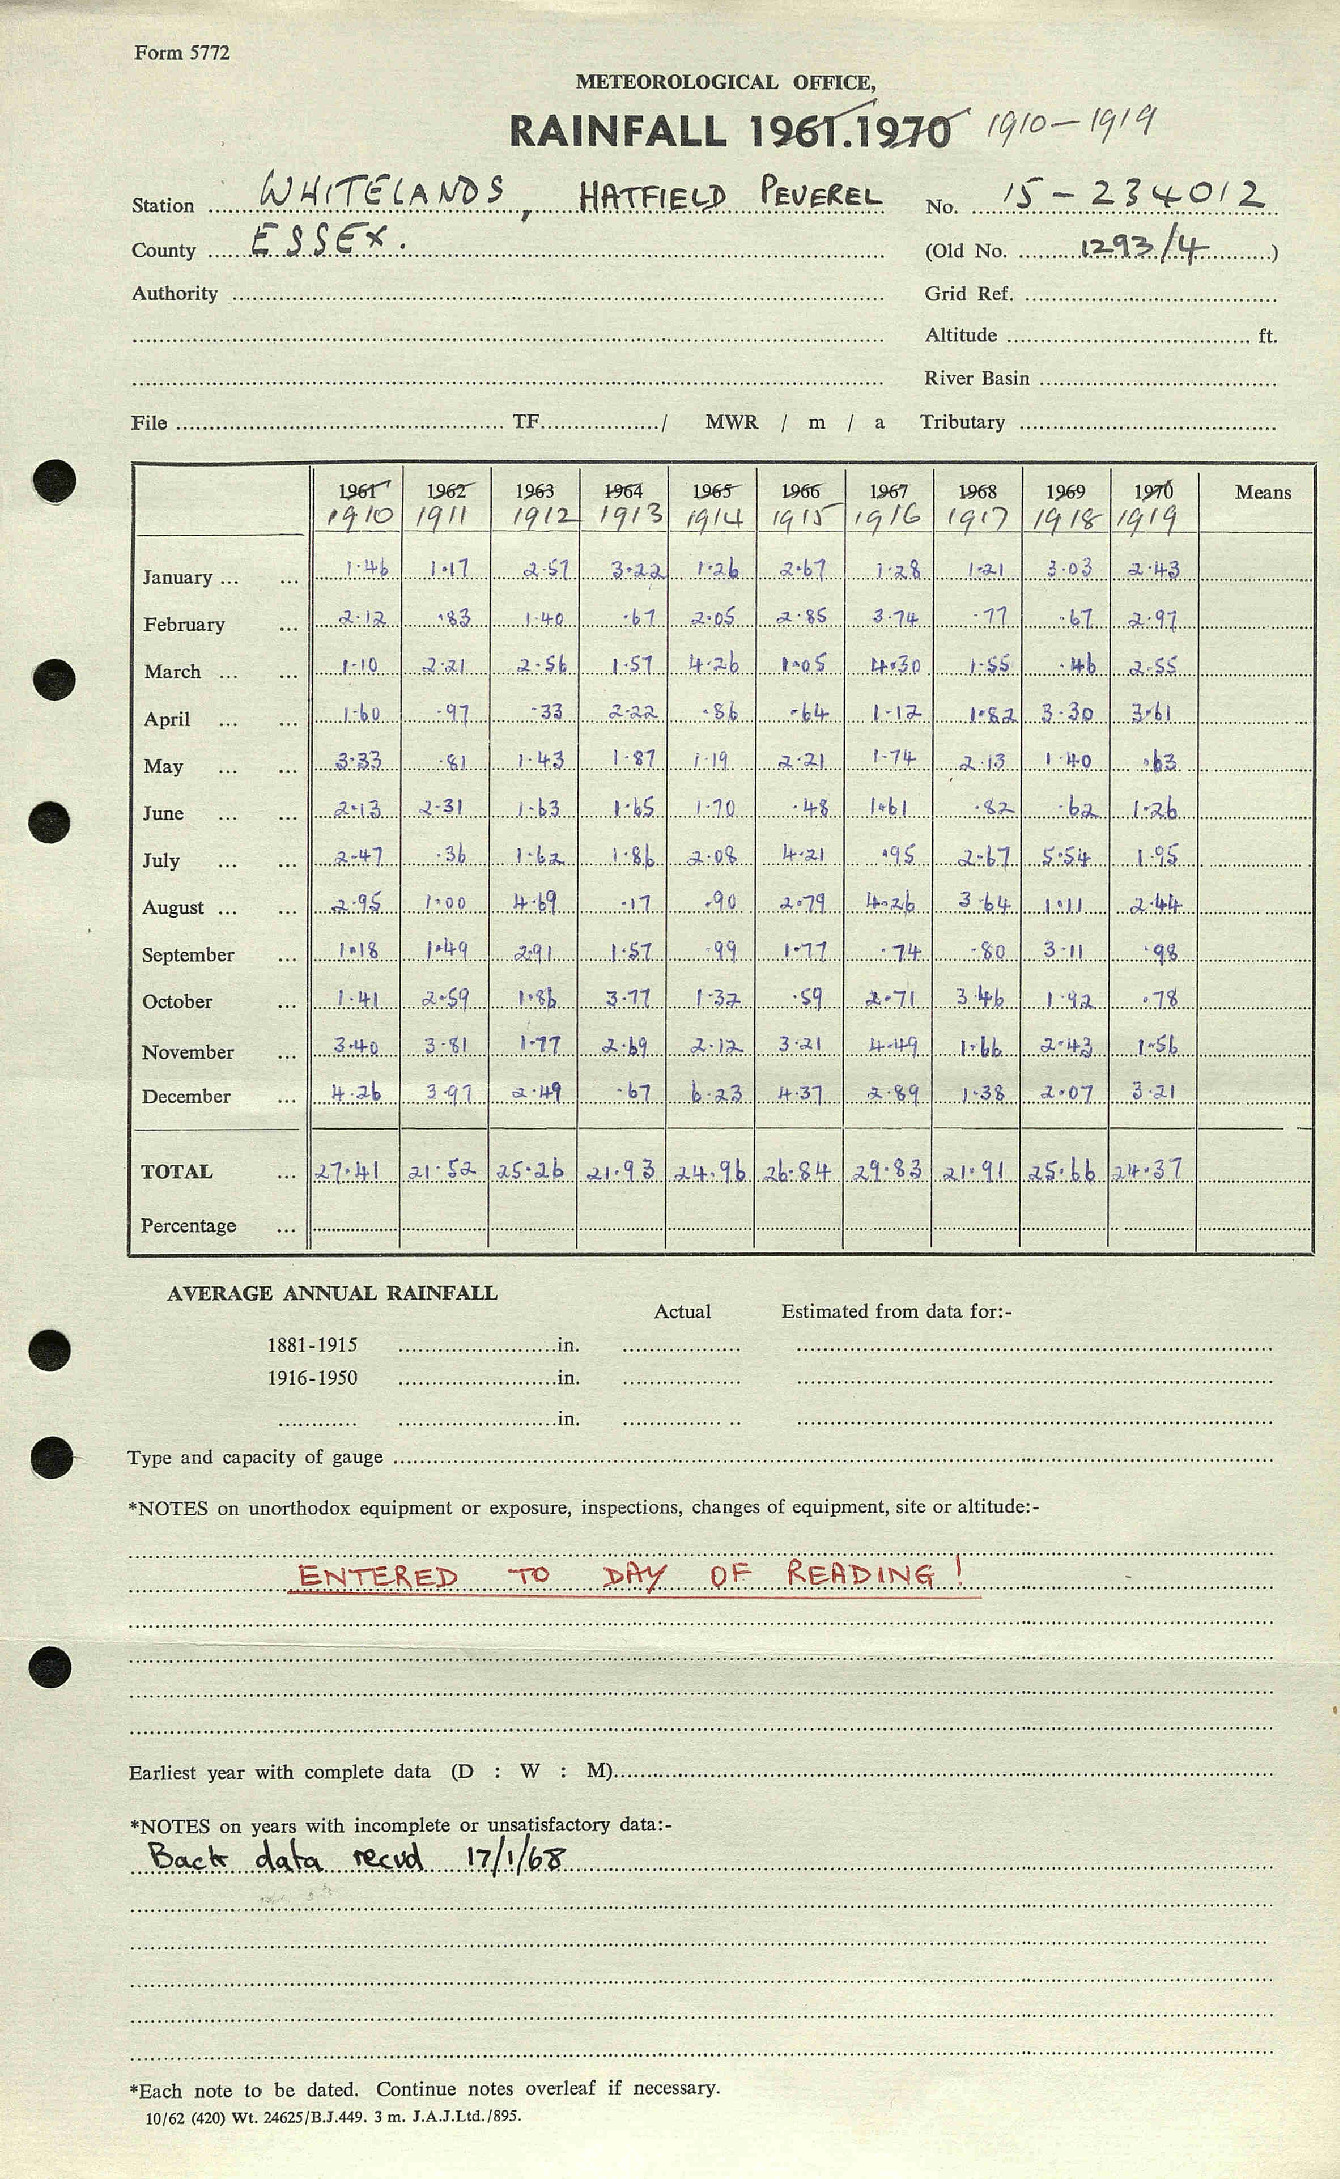 Form 5772
METEOROLOGICAL OFFICE,
RAINFALL 1961.1970 1910-1919
Station WHITELANDS, HATFIELD PEVEREL No. 15-234012
County ESSEX. (Old No. 1293/4)
Authority Grid Ref.
Altitude ft.
River Basin
File TF / MWR / m / a Tributary
1961 1962 1963 1964 1965 1966 1967 1968 1969 1970 Means
1910 1911 1912 1913 1914 1915 1916 1917 1918 1919
January ... ... 1.46 1.17 2.57 3.22 1.26 2.67 1.28 1.21 3.03 2.43
February ... 2.12 .83 1.40 .67 2.05 2.85 3.74 .77 .67 2.97
March ... ... 1.10 2.21 2.56 1.57 4.26 1.05 4.30 1.55 .46 2.55
April ... ... 1.60 .97 .33 2.22 .86 .64 1.12 1.82 3.30 3.61
May ... ... 3.33 .81 1.43 1.87 1.19 2.21 1.74 2.13 1.40 .63
June ... ... 2.13 2.31 1.63 1.65 1.70 .48 1.61 .82 .62 1.26
July ... ... 2.47 .36 1.62 1.86 2.08 4.21 .95 2.67 5.54 1.95
August ... ... 2.95 1.00 4.69 .17 .90 2.79 4.26 3.64 1.11 2.44
September ... 1.18 1.49 2.91 1.57 .99 1.77 .74 .80 3.11 .98
October ... 1.41 2.59 1.86 3.77 1.32 .59 2.71 3.46 1.92 .78
November ... 3.40 3.81 1.77 2.69 2.12 3.21 4.49 1.66 2.43 1.56
December ... 4.26 3.97 2.49 .67 6.23 4.37 2.89 1.38 2.07 3.21
TOTAL ... 27.41 21.52 25.26 21.93 24.96 26.84 29.83 21.91 25.66 24.37
Percentage ...
AVERAGE ANNUAL RAINFALL
Actual Estimated from data for:-
1881-1915 in.
1916-1950 in.
in.
Type and capacity of gauge
*NOTES on unorthodox equipment or exposure, inspections, changes of equipment, site or altitude:-
ENTERED TO DAY OF READING!
Earliest year with complete data (D : W : M)
*NOTES on years with incomplete or unsatisfactory data:-
Back data recvd 17/1/68
*Each note to be dated. Continue notes overleaf if necessary.
10/62 (420) Wt. 24625/B.J.449. 3 m. J.A.J.Ltd./895.